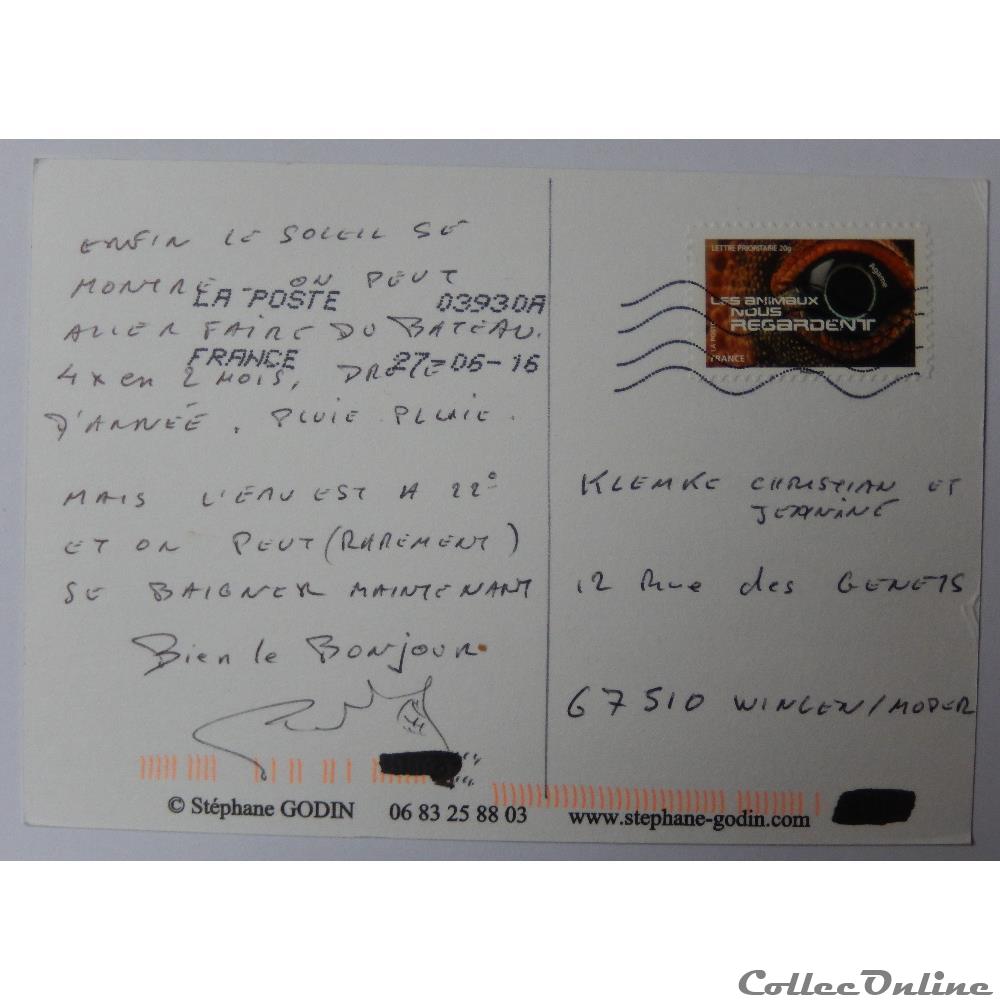 ENFIN LE SOLEIL SE
MONTRE ON PEUT
LA POSTE 03930A
ALLER FAIRE DU BATEAU.
FRANCE 27-06-16
4x en 2 MOIS, DROLE
D'ANNÉE, PLUIE PLUIE.
MAIS L'EAU EST A 22°
ET ON PEUT (RAREMENT)
SE BAIGNER MAINTENANT
Bien le Bonjour
LETTRE PRIORITAIRE 20g
Agame
LES ANIMAUX
NOUS
REGARDENT
LA POSTE
FRANCE
KLEMKE CHRISTIAN ET
JEANINE
12 Rue des GENETS
67510 WINGEN/MODER
© Stéphane GODIN 06 83 25 88 03 www.stephane-godin.com
CollecOnline